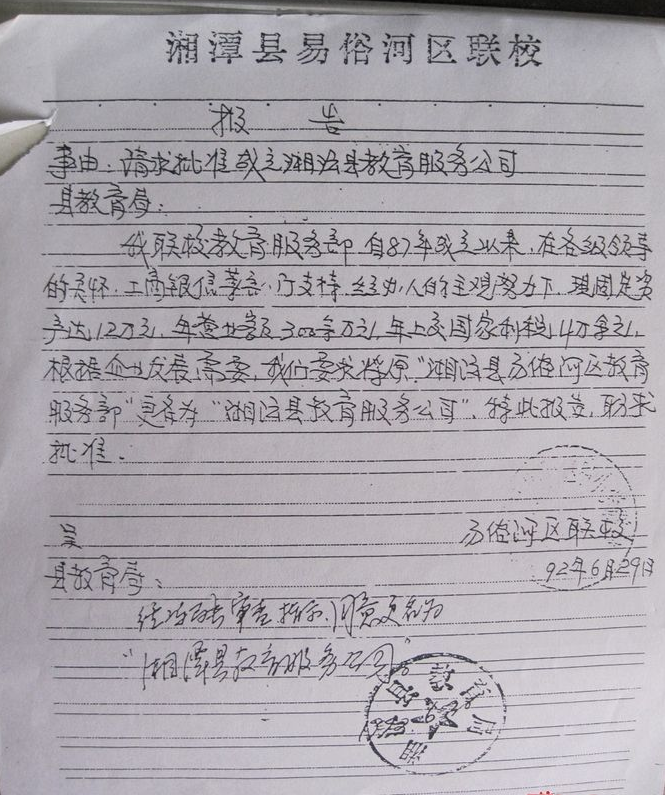 湘潭县易俗河区联校
报 告
事由：请求批准成立湘潭县教育服务公司
县教育局：
我联校教育服务部，自87年成立以来，在各级领导
的关怀，工商银信等部门支持，经办人的主观努力下，现固定资
产达12万元，年营业额300多万元，年上交国家利税4万余元，
根据企业发展需要，我们要求将原“湘潭县易俗河区教育
服务部”更名为“湘潭县教育服务公司”，特此报告，盼求
批准。
呈
易俗河区联校
县教育局：
92年6月29日
审查 同意更名为
“湘潭县教育服务公司”。
县教育局